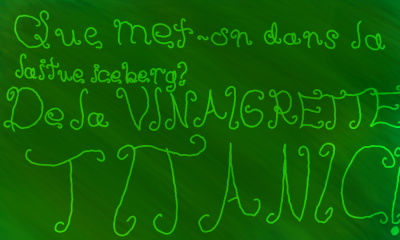 Que met-on dans la
laitue iceberg?
De la VINAIGRETTE
TITANIC!